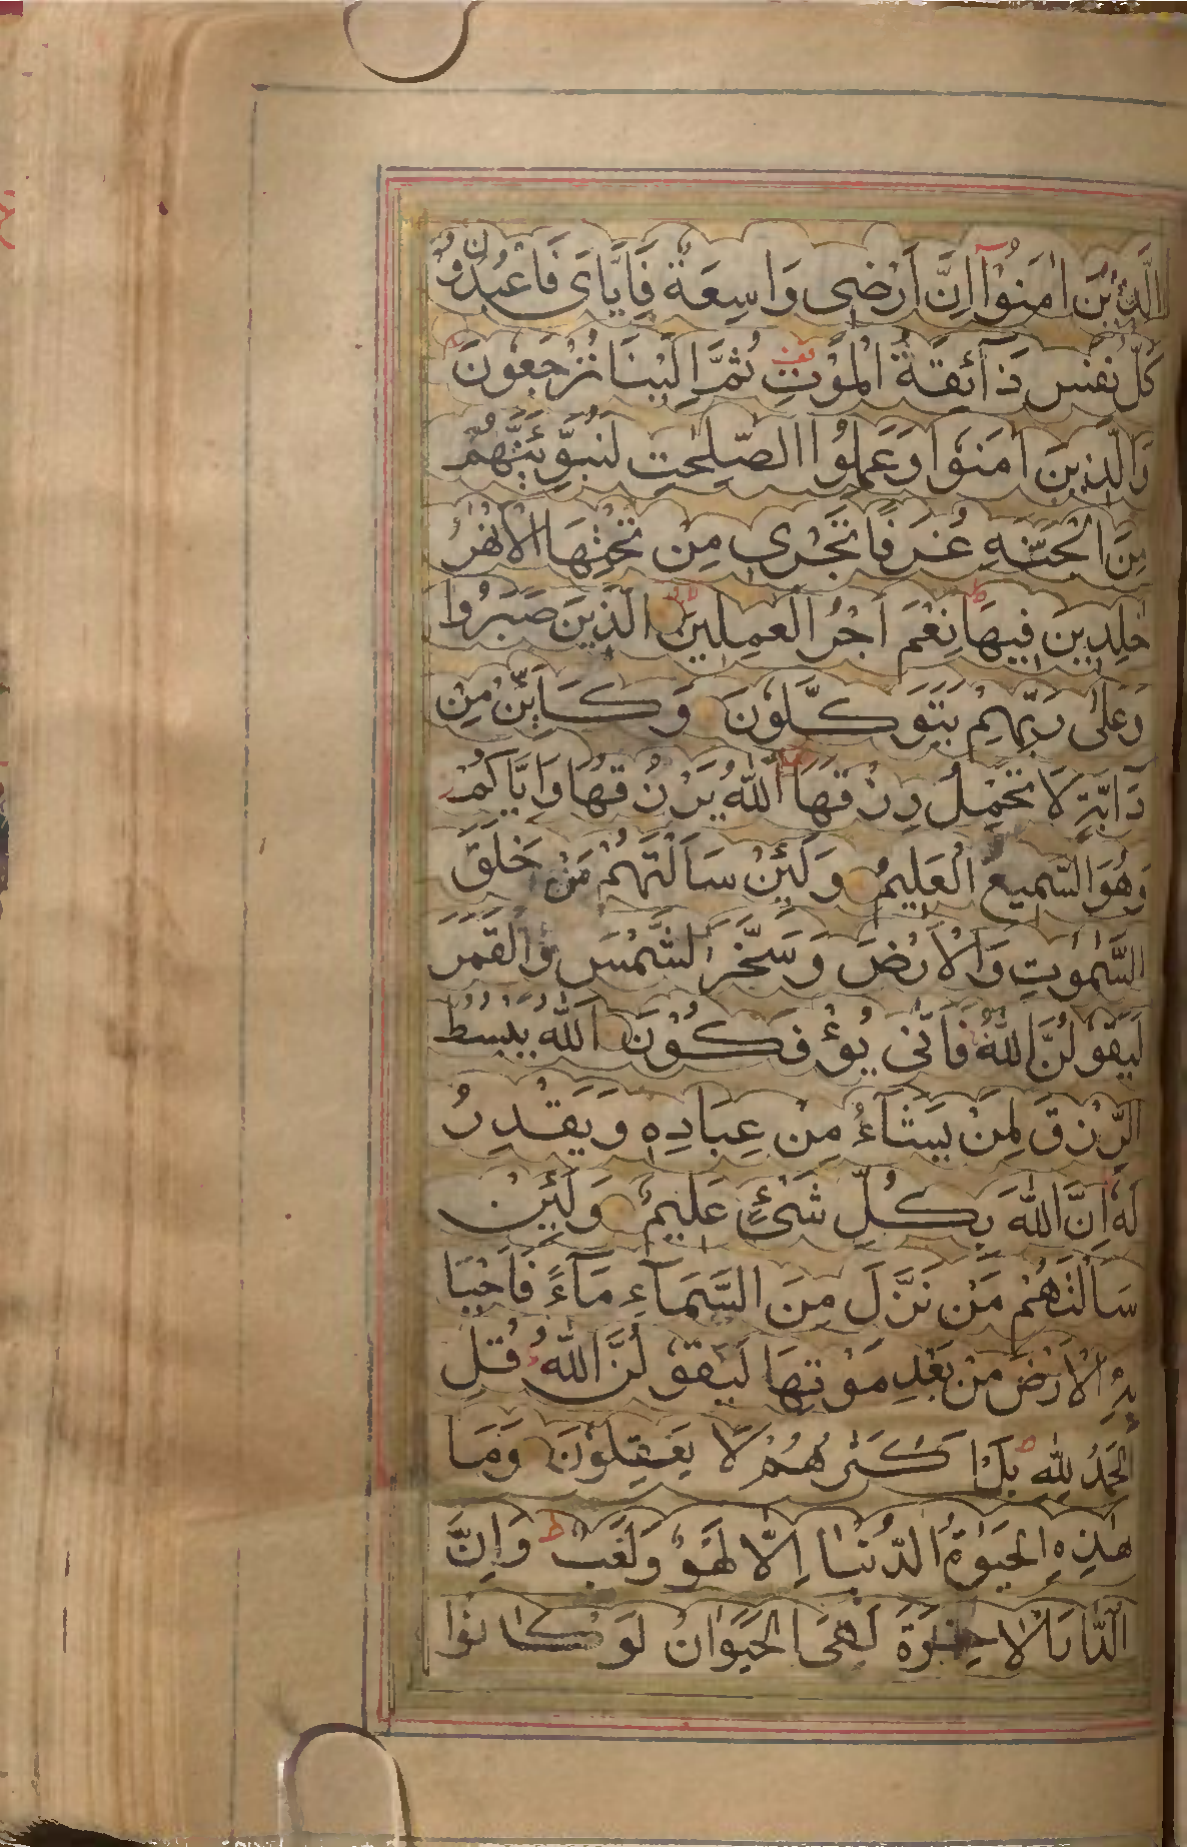 الَّذِيْنَ اٰمَنُوْۤا اِنَّ اَرْضِى وَاسِعَةٌ فَاِيَّاىَ فَاعْبُدُوْنِ
كُلُّ نَفْسٍ ذَآئِقَةُ الْمَوْتِ ثُمَّ اِلَيْنَا تُرْجَعُوْنَ
وَالَّذِيْنَ اٰمَنُوْا وَعَمِلُوا الصّٰلِحٰتِ لَنُبَوِّئَنَّهُمْ
مِنَ الْجَنَّةِ غُرَفًا تَجْرِى مِنْ تَحْتِهَا الْاَنْهٰرُ
خٰلِدِيْنَ فِيْهَا نِعْمَ اَجْرُ الْعٰمِلِيْنَ الَّذِيْنَ صَبَرُوْا
وَعَلٰى رَبِّهِمْ يَتَوَكَّلُوْنَ وَكَاَيِّنْ مِنْ
دَآبَّةٍ لَا تَحْمِلُ رِزْقَهَا اَللّٰهُ يَرْزُقُهَا وَاِيَّاكُمْ
وَهُوَ السَّمِيْعُ الْعَلِيْمُ وَلَئِنْ سَاَلْتَهُمْ مَنْ خَلَقَ
السَّمٰوٰتِ وَالْاَرْضَ وَسَخَّرَ الشَّمْسَ وَالْقَمَرَ
لَيَقُوْلُنَّ اللّٰهُ فَاَنّٰى يُؤْفَكُوْنَ اَللّٰهُ يَبْسُطُ
الرِّزْقَ لِمَنْ يَشَآءُ مِنْ عِبَادِهٖ وَيَقْدِرُ
لَهٗ اِنَّ اللّٰهَ بِكُلِّ شَىْءٍ عَلِيْمٌ وَلَئِنْ
سَاَلْتَهُمْ مَنْ نَزَّلَ مِنَ السَّمَآءِ مَآءً فَاَحْيَا
بِهِ الْاَرْضَ مِنْ بَعْدِ مَوْتِهَا لَيَقُوْلُنَّ اللّٰهُ قُلِ
الْحَمْدُ لِلّٰهِ بَلْ اَكْثَرُهُمْ لَا يَعْقِلُوْنَ وَمَا
هٰذِهِ الْحَيٰوةُ الدُّنْيَا اِلَّا لَهْوٌ وَلَعِبٌ وَاِنَّ
الدَّارَ الْاٰخِرَةَ لَهِىَ الْحَيَوَانُ لَوْ كَانُوْا